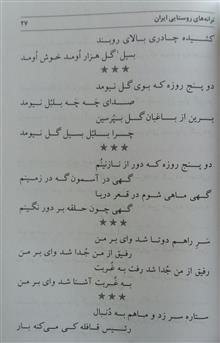 ترانه‌های روستایی ایران
۲۷
کشیده چادری بالای روبند
بسیل گل هزار اومد خوش اومد
دو پنج روزه که بوی گل نیومد
صدای چَه چَه بلبُل نیومد
برین از باغبان گل بپرسین
چرا بلبُل بسیل گل نیومد
***
دو پنج روزه که دور از نازنینُم
گهی در آسمون گه در زمینم
گهی ماهی شوم در قعر دریا
گهی چون حلقه بر دور نگینم
***
سَرِ راهم دوتا شد وای بر من
رفیق از من جُدا شد وای بر من
رفیق از من جُدا شد رفت به غُربت
به غُربت آشنا شد وای بر من
***
ستاره سر زد و ماهم به دُنبال
رئیس قافله کی می‌کنه بار